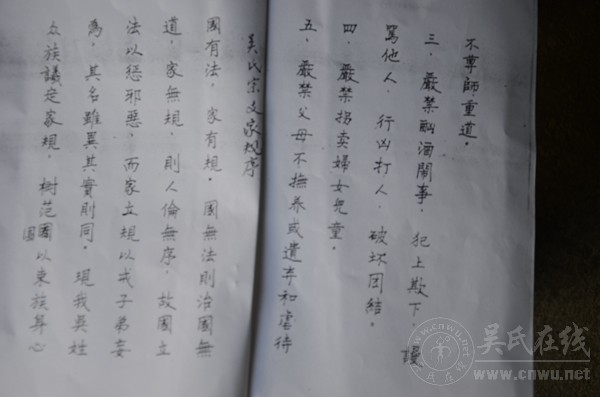 不尊師重道。
三、嚴禁酗酒鬧事，犯上欺下，謾
罵他人，行凶打人，破坏团结。
四、嚴禁拐卖婦女兒童。
五、嚴禁父母不撫养或遺弃和虐待
吳氏宗支家規序
國有法，家有規。國無法則治國無
道，家無規，則人倫無序，故國立
法以惩邪惡，而家立規以戒子弟妄
為，其名雖異其實則同。現我吳姓
众族議定家規，树范圍以束族弟心
吴氏在线
www.cnwu.net